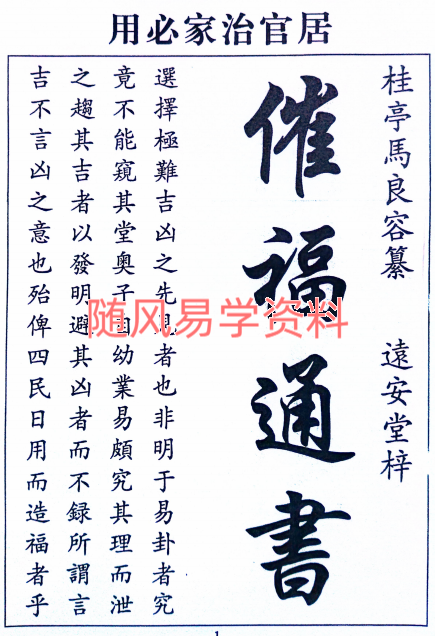 居官治家必用
桂亭馬良容纂 遠安堂梓
催福通書
選擇極難吉凶之先見者也非明于易卦者究
竟不能窺其堂奧子自幼業易頗究其理而泄
之趨其吉者以發明避其凶者而不録所謂言
吉不言凶之意也殆俾四民日用而造福者乎
随风易学资料
1